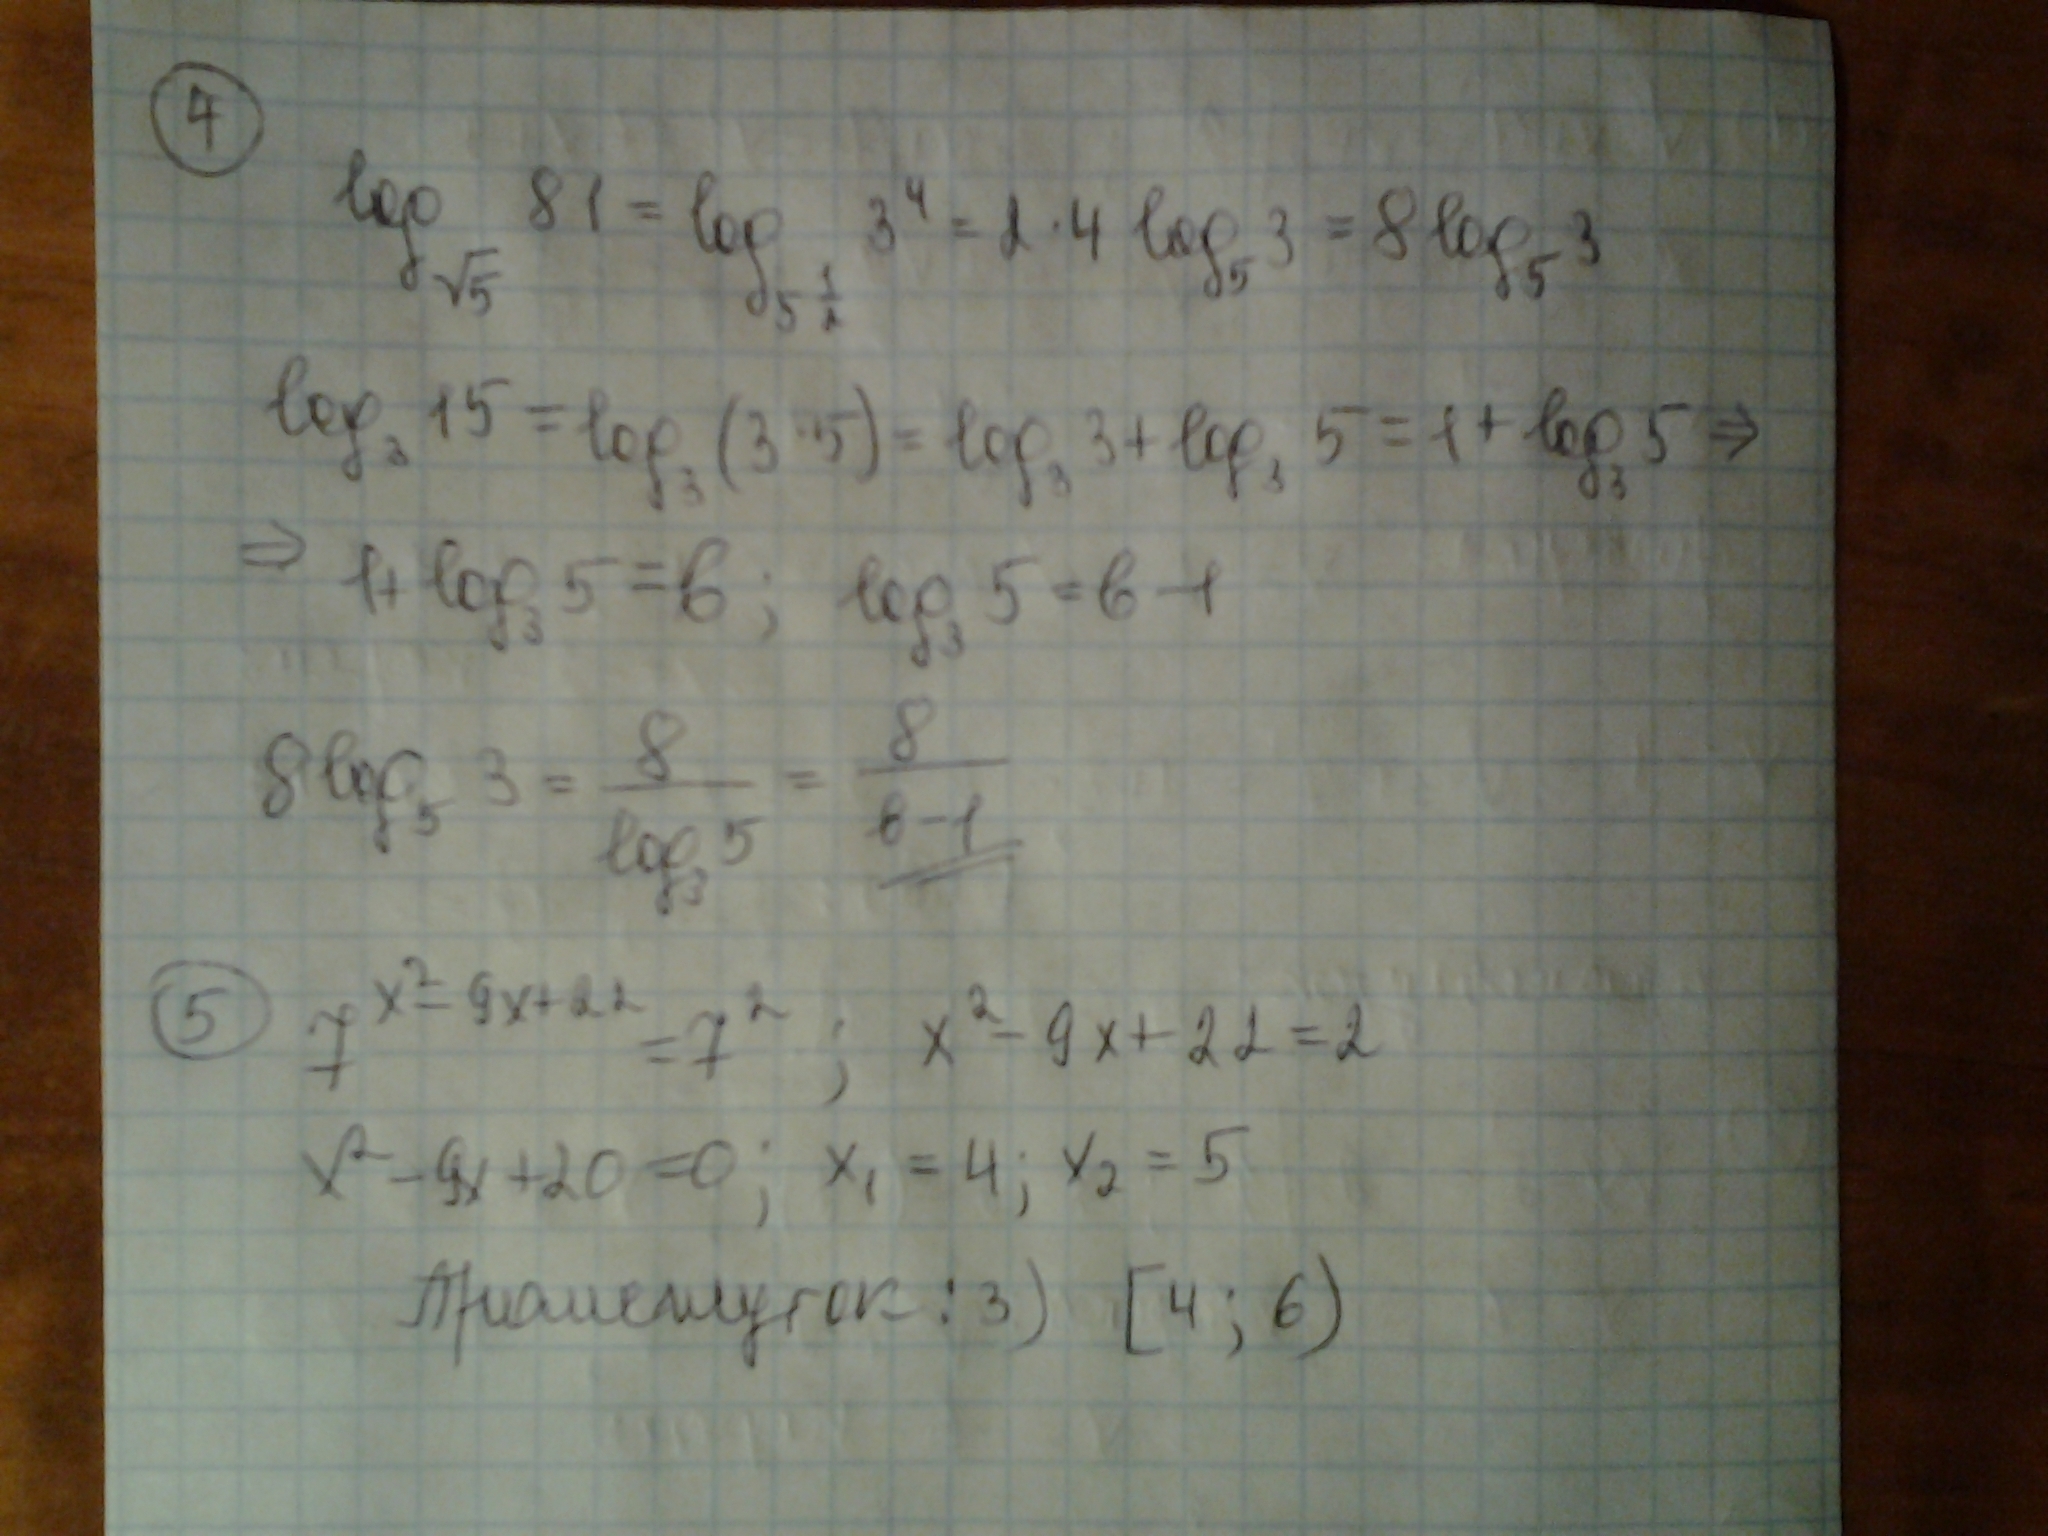 4
log_√5 81 = log_5^(1/2) 3⁴ = 2·4 log₅3 = 8 log₅3
log₃15 = log₃(3·5) = log₃3 + log₃5 = 1 + log₃5 ⇒
⇒ 1 + log₃5 = в; log₃5 = в - 1
8 log₅3 = 8/log₃5 = 8/(в-1)
5 7^(x²-9x+22) = 7²; x²-9x+22=2
x²-9x+20=0; x₁=4; x₂=5
Промежуток: 3) [4; 6)